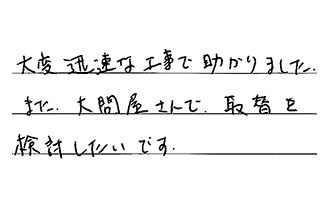 大変迅速な工事で助かりました.
また. 大問屋さんで. 取替を
検討したいです.